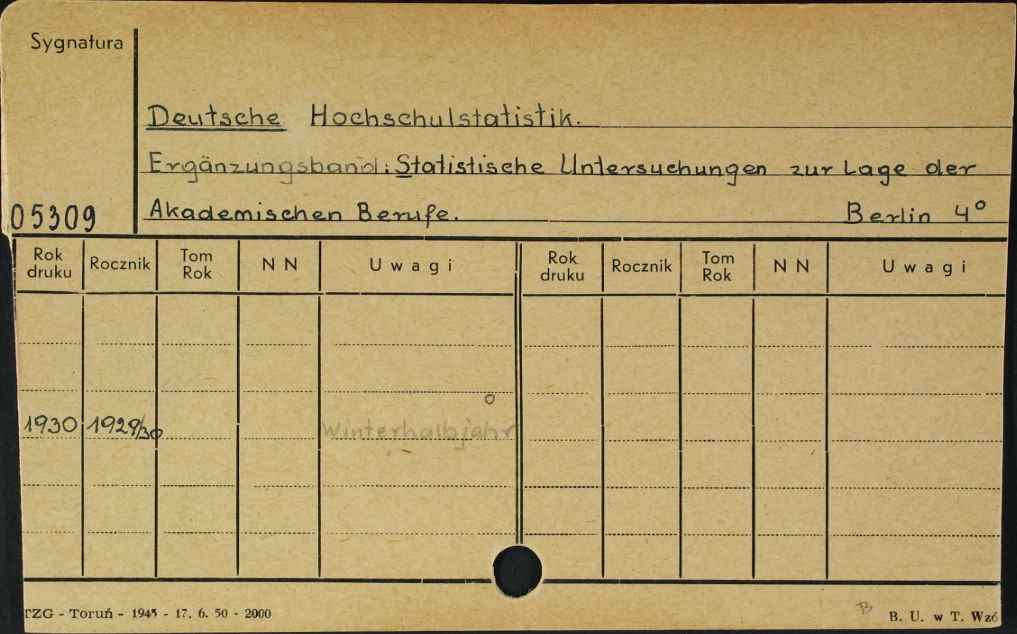 Sygnatura
Deutsche Hochschulstatistik.
Ergänzungsband: Statistische Untersuchungen zur Lage der
05309 Akademischen Berufe. Berlin 4°
Rok druku Rocznik Tom Rok N N Uwagi Rok druku Rocznik Tom Rok N N Uwagi
1930 1929/30 Winterhalbjahr
B
TZG - Toruń - 1945 - 17. 6. 50 - 2000 B. U. w T. Wzó